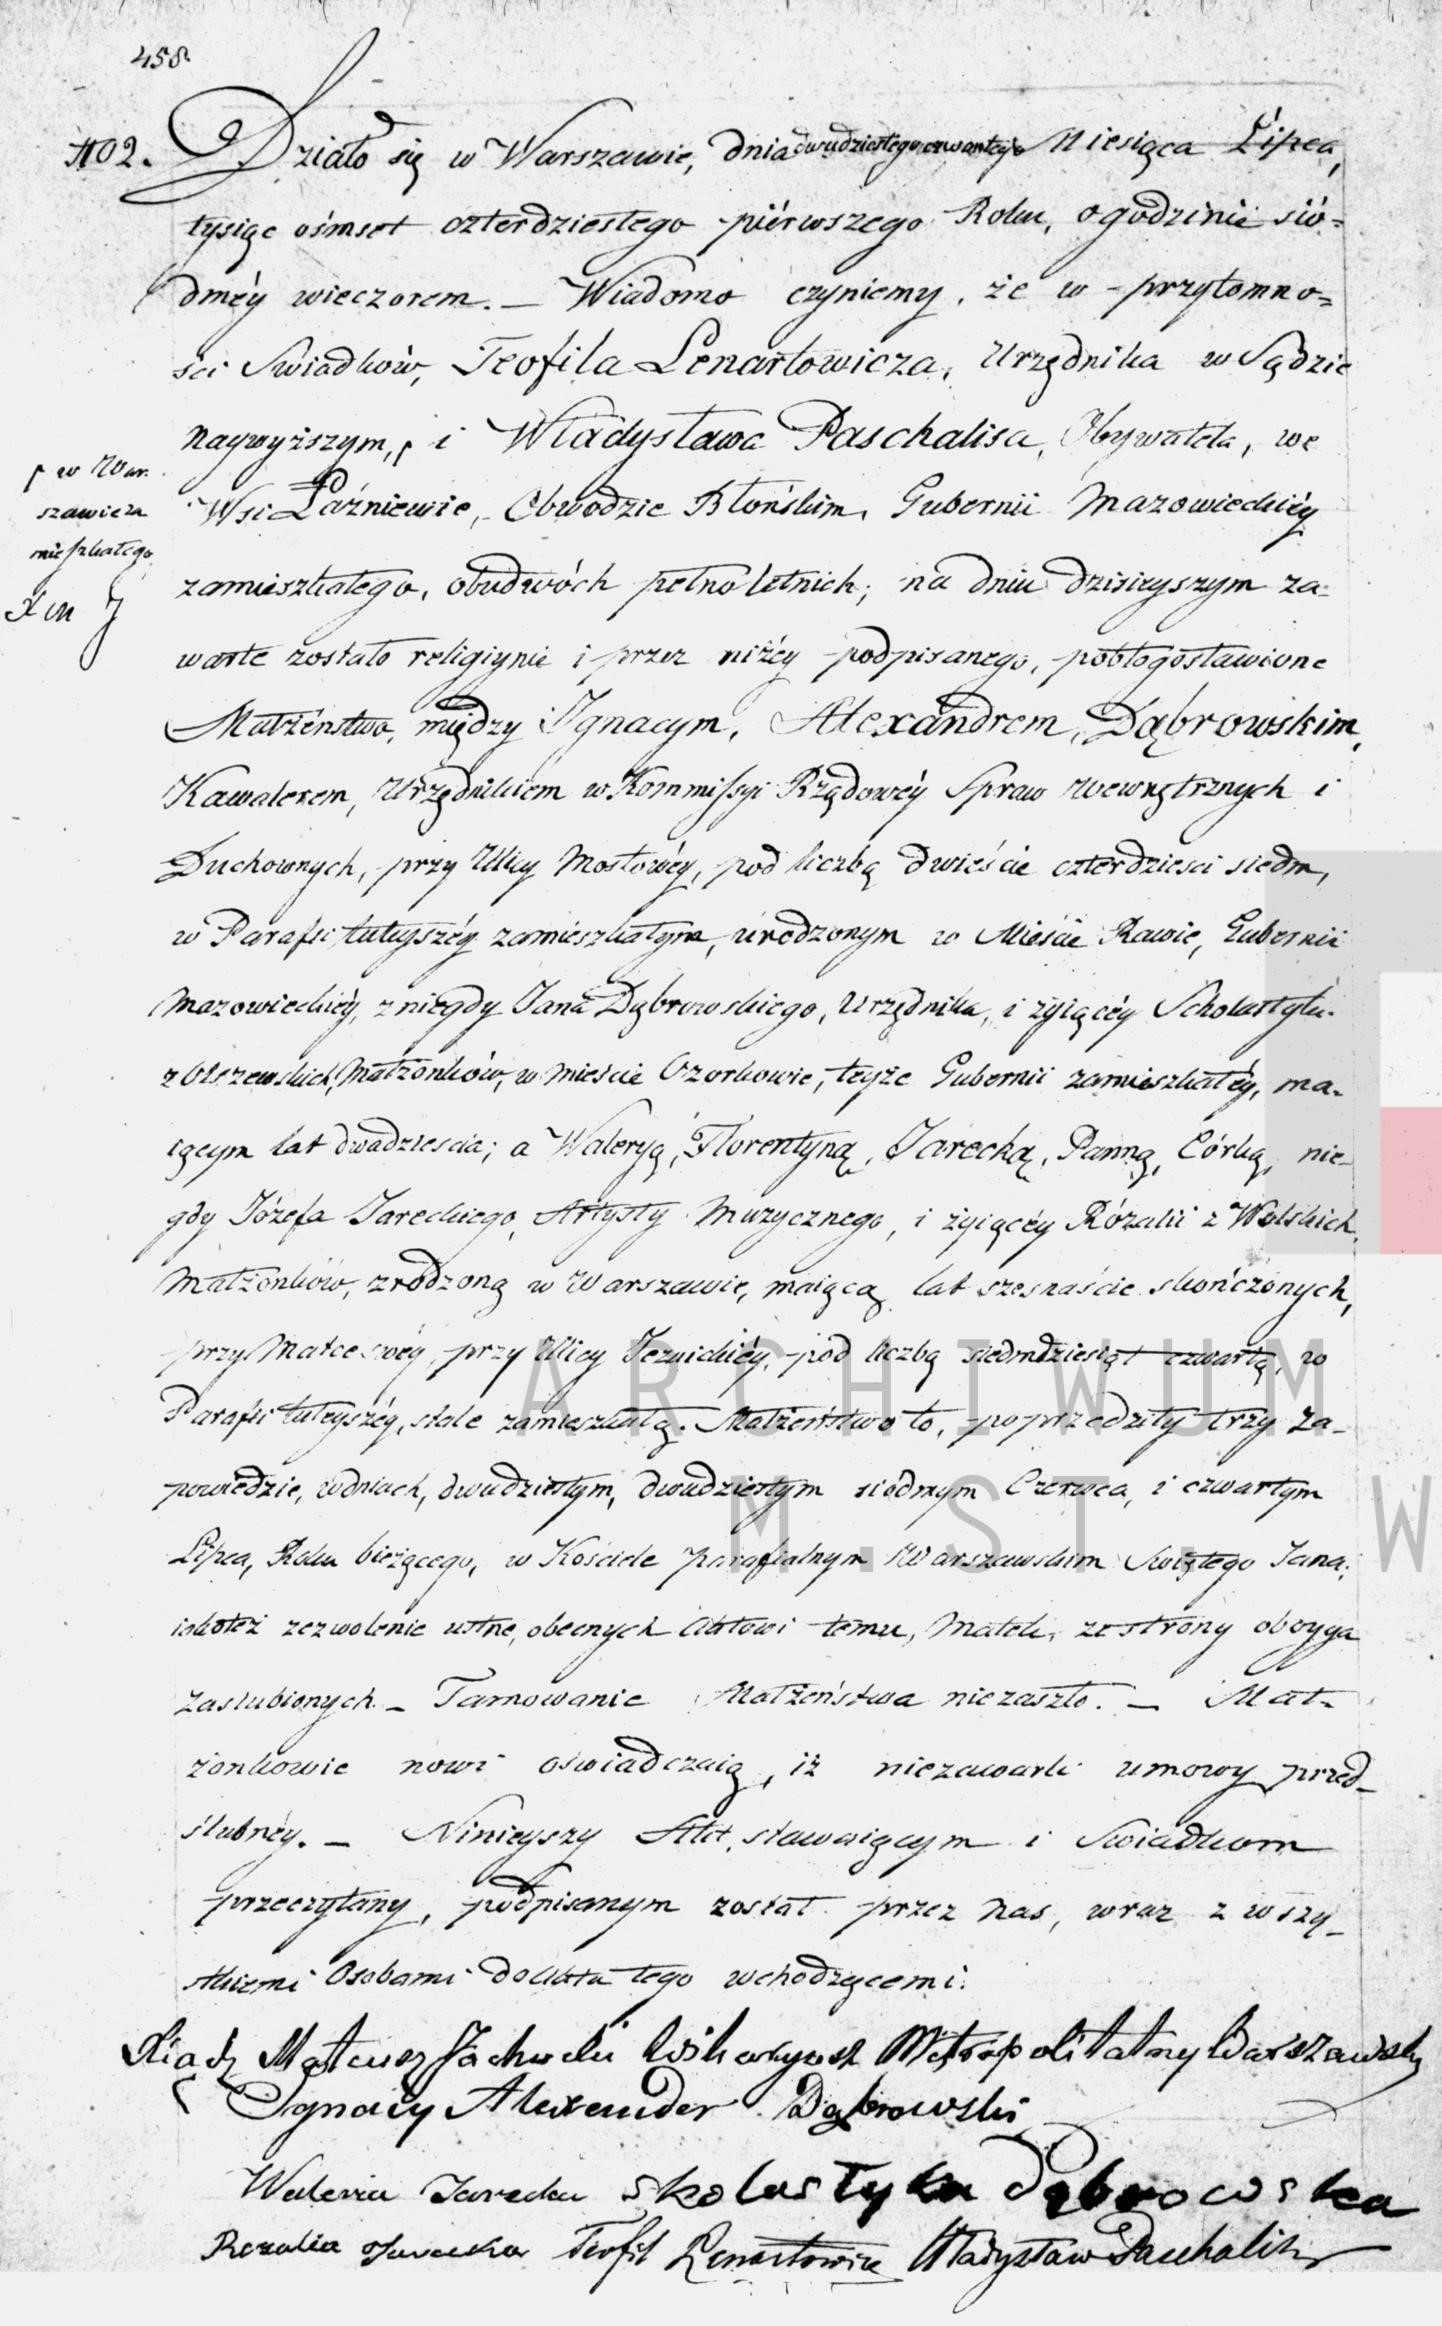 458
402. Działo się w Warszawie, dnia dwudziestego czwartego Miesiąca Lipca,
tysiąc ośmset czterdziestego piérwszego Roku, o godzinie sió-
dméy wieczorem. — Wiadomo czyniemy, że w przytomno-
ści Swiadków, Teofila Lenartowicza, Urzędnika w Sądzie
Naywyższym, i Władysława Paschalisa, Obywatela, we
Wsi Łaźniewie, Obwodzie Błońskim, Gubernii Mazowieckiéy
zamieszkałego, obudwóch pełnoletnich; na dniu dzisieyszym za-
warte zostało religiynie i przez niżéy podpisanego, pobłogosławione
Małżeństwo, między Ignacym, Alexandrem, Dąbrowskim,
Kawalerem, Urzędnikiem w Kommissyi Rządowéy Spraw Wewnętrznych i
Duchownych, przy Ulicy Mostowéy, pod liczbą dwieście czterdzieści siedm,
w Parafii tuteyszéy zamieszkałym, urodzonym w Mieście Rawie, Gubernii
Mazowieckiéy, z niegdy Jana Dąbrowskiego, Urzędnika, i żyiącéy Scholastyki
z Olszewskich, Małżonków, w Mieście Ozorkowie, teyże Gubernii zamieszkałéy, ma-
iącym lat dwadzieścia; a Waleryą, Florentyną, Jarecką, Panną, Córką, nie-
gdy Józefa Jareckiego, Artysty Muzycznego, i żyiącéy Rózalii z Wolskich,
Małżonków, zrodzoną w Warszawie, maiącą lat szesnaście skończonych,
przy Matce swéy, przy Ulicy Jezuickiéy, pod liczbą siedmdziesiąt czwartą, w
Parafii tuteyszéy, stale zamieszkałą. Małżeństwo to, poprzedziły trzy za-
powiedzie, w dniach, dwudziestym, dwudziestym siódmym Czerwca, i czwartym
Lipca, Roku bieżącego, w Kościele parafialnym Warszawskim Swiętego Jana,
iakoteż zezwolenie ustne, obecnych Aktowi temu, Matek, ze strony oboyga
zaślubionych. — Tamowanie Małżeństwa nie zaszło. — Mał-
żonkowie nowi oświadczaią, iż niezawarli umowy przed-
ślubnéy. — Ninieyszy Akt, stawaiącym i Swiadkom
przeczytany, podpisanym został przez Nas, wraz z wszy-
stkiemi Osobami do Aktu tego wchodzącemi.
w War-
szawie za
mieszkałego
Xiądz Mateusz Wikaryusz Metropolitalny Warszawsky
Ignacy Alexander Dąbrowski
Waleria Jarecka Skolastyka Dąbrowska
Rozalia Jarecka Teofil Lenartowicz Władysław Paschalis
ARCHIWUM
M. ST. W